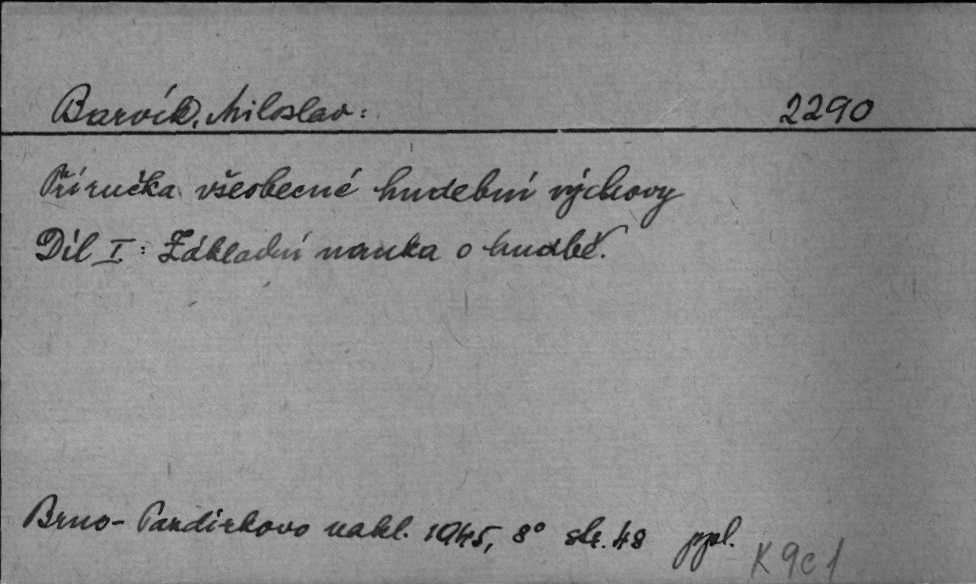 Barvík, Miloslav: 2290
Příručka všeobecné hudební výchovy
Díl I: Základní nauka o hudbě.
Brno - Pazdírkovo nakl. 1945, 8° str. 48 ppl.
K 9c1